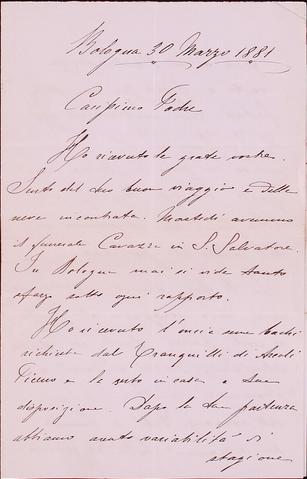 Bologna 30 Marzo 1881
Carissimo Padre
Ho ricevuto le grate vostre.
Sento del suo buon viaggio e della
neve incontrata. Martedì avemmo
il funerale Cavazza in S. Salvatore.
In Bologna mai si vide tanto
sfarzo sotto ogni rapporto.
Ho ricevuto l'oncia seme bachi
richiesta dal Tranquilli di Ascoli
Piceno e la tento in casa a sua
disposizione. Dopo la sua partenza
abbiamo avuto variabilità di
stagione